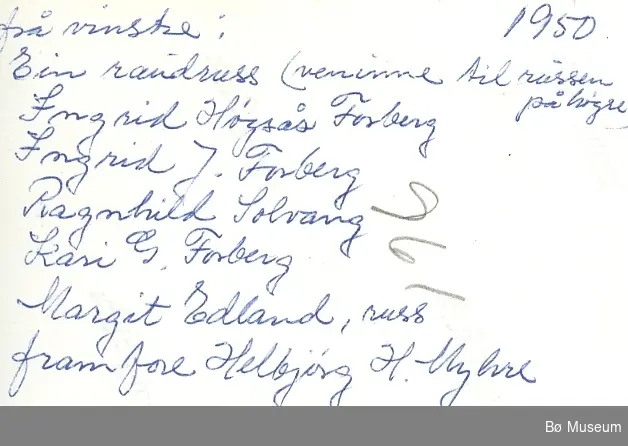 frå vinstre: 1950.
Ein raudruss (veninne til russen
på høgre)
Ingrid Høgsås Forberg
Ingrid J. Forberg
Ragnhild Solvang
Kari G. Forberg
Margit Edland, russ
framfore Helbjørg H. Myhre
Bø Museum